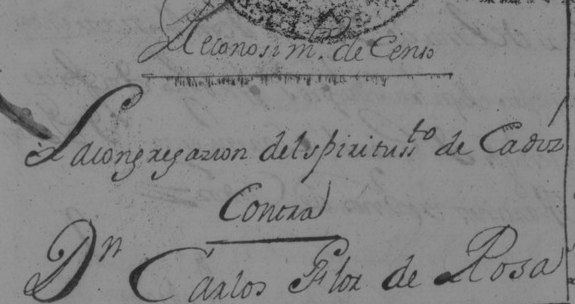 Reconosim.to de Censo
La congregazion del spiritu ss.to de Cadiz
Contra
Dn Carlos Flor de Rosa